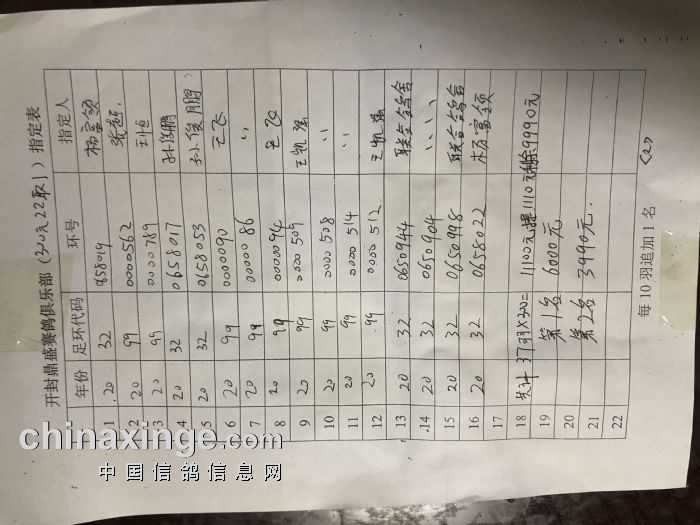 开封鼎盛赛鸽俱乐部(300元22取1)指定表
年份 足环代码 环号 指定人
1 20 32 858019 杨富领
2 20 99 0000562 张超
3 20 99 0000789 王恒
4 20 32 0658017 孙俊鹏
5 20 32 0658053 孙俊鹏
6 20 99 0000090 王飞
7 20 99 0000086 〃
8 20 99 0000094 王飞
9 20 99 0000509 王凯强
10 20 99 0000508 〃
11 20 99 0000514 〃
12 20 99 0000512 王凯强
13 20 32 0650944 联合鸽舍
14 20 32 0650904 〃
15 20 32 0650998 联合鸽舍
16 20 32 0658022 杨富领
17
18 共计37羽X300=11100元提1110元剩余9990元
19 第1名 6000元
20
21 第2名 3990元.
22
每10羽追加1名 <2>
chinaxinge.com
中国信鸽信息网